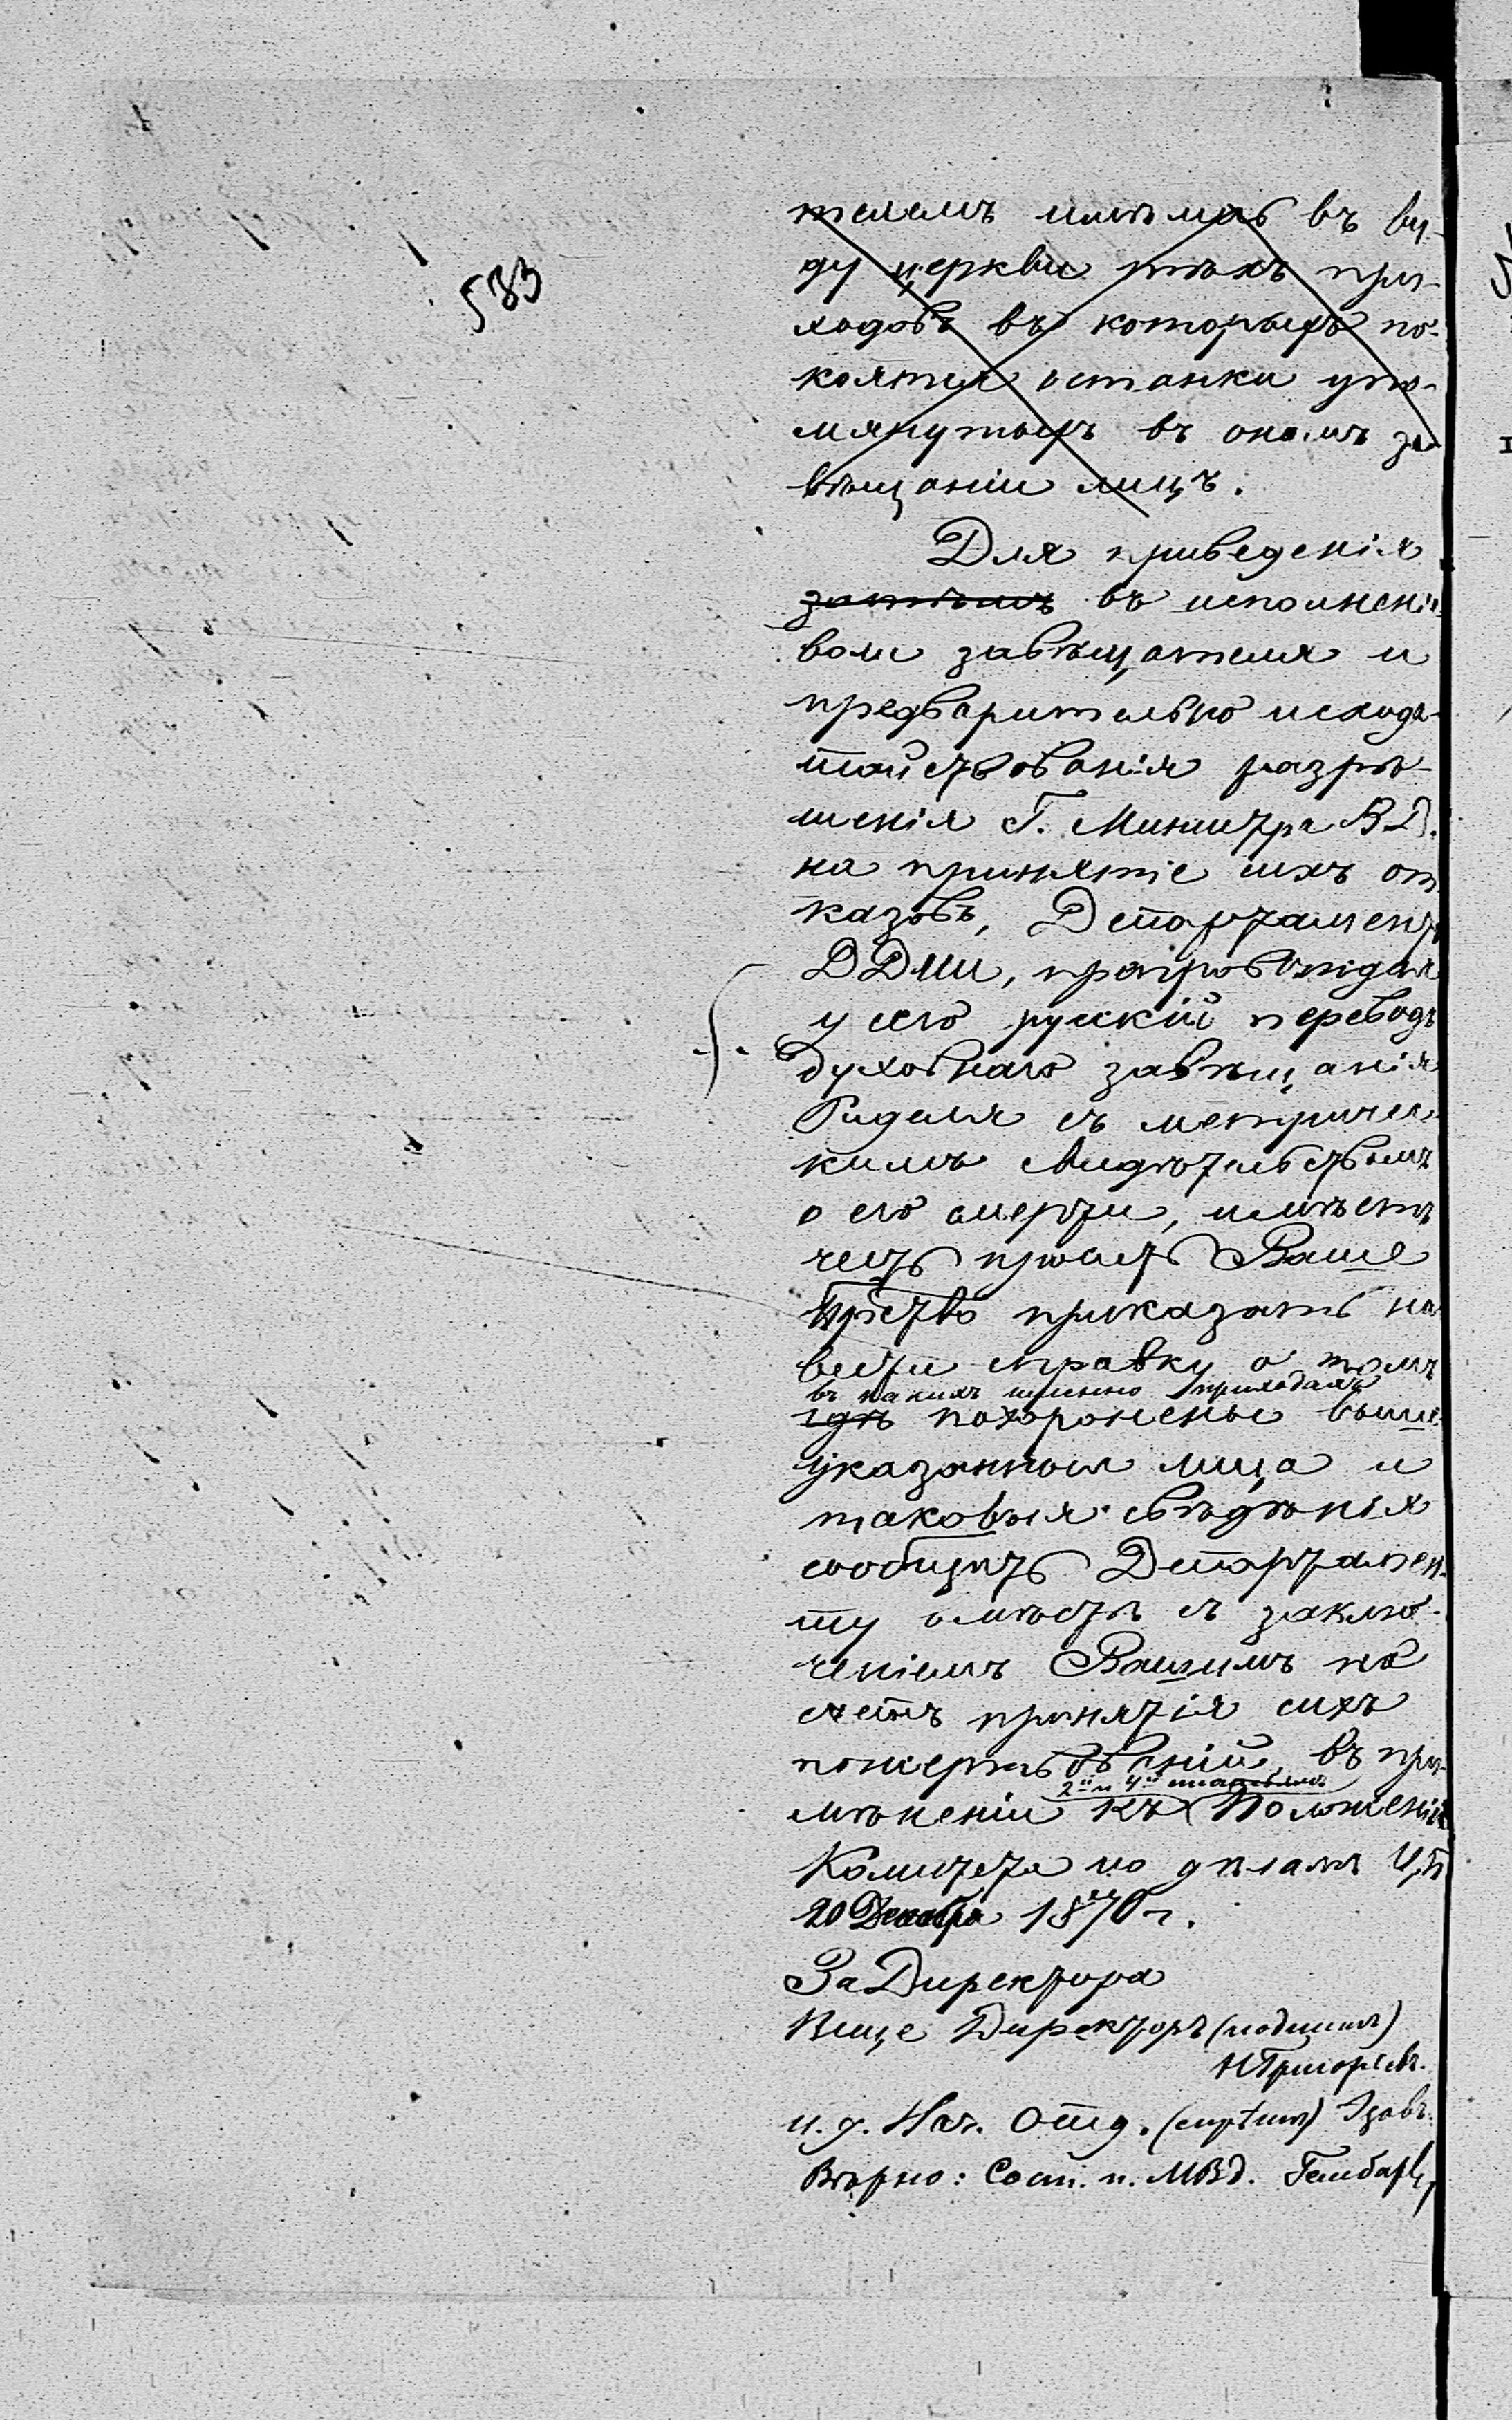 583
телемъ имѣлись въ ви-
ду церкви тѣхъ при-
ходовъ въ которыхъ по-
коятся останки упо-
мянутыхъ въ ономъ за-
вѣщаніи лицъ.
Для приведенія
затѣмъ въ исполненіе
воли завѣщателя и
предварительно исхода-
тайствованія разрѣ-
шенія Г. Министра В.Д.
на принятіе сихъ от
казовъ, Департаментъ
ДДИИ, препровождая
у сего русскій переводъ
духовнаго завѣщанія
Ригеля съ метричес-
кимъ свидѣтельствомъ
о его смерти, имѣетъ
честь просить Ваше
Прство приказать на
вести справку о томъ
въ какихъ именно приходахъ
гдѣ похоронены выше
указанныя лица и
таковыя свѣдѣнія
сообщить Департамен-
ту вмѣстѣ съ заклю-
ченіемъ Вашимъ на
счетъ принятія сихъ
пожертвованій, въ при-
2й и 4й статьямъ
мѣненіи къ Положенію
Комитета по дѣламъ ЦП
20 Декабря 1870 г.
За Директора
Вице Директоръ (подписал)
Н Григорьевъ.
и. д. Нач. Отд. (скрѣпил)
Вѣрно: Сост. п. МВД.